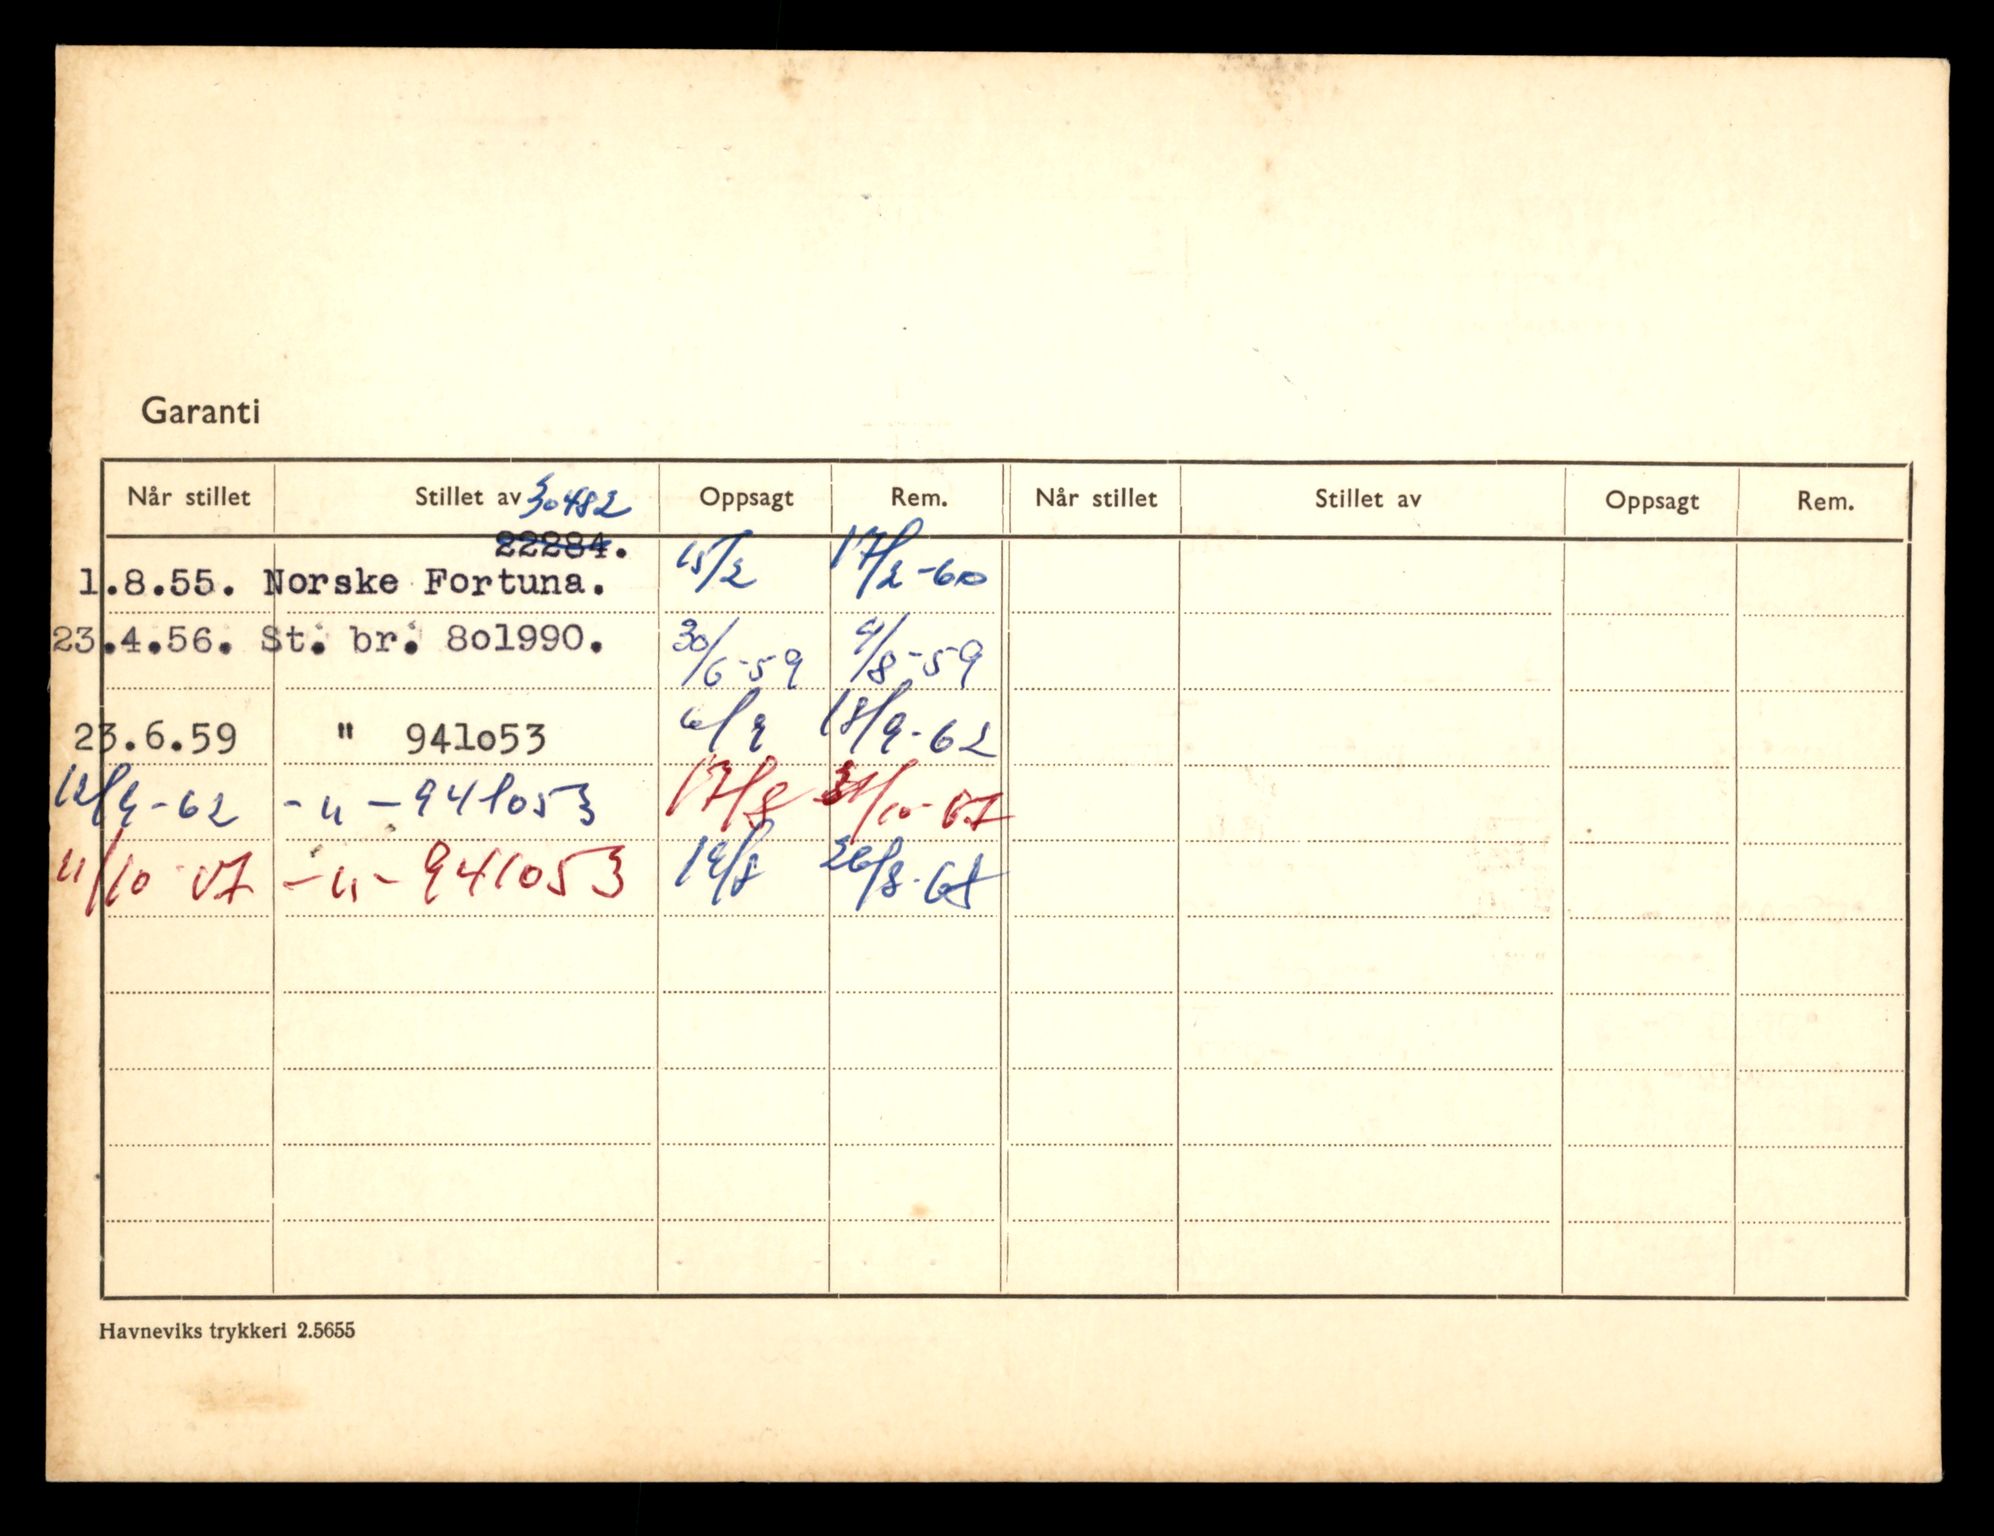 Garanti
Når stillet Stillet av 30482 Oppsagt Rem. Når stillet Stillet av Oppsagt Rem.
22284.
1.8.55. Norske Fortuna. 15/2 17/2-60
23.4.56. St. br. 8o1990. 30/6-59 4/8-59
23.6.59 " 941o53 6/9 18/9-62
12/9-62 -"- 941053 17/8 31/10-67
11/10 67 -"- 941053 19/8 26/8-68
Havneviks trykkeri 2.5655